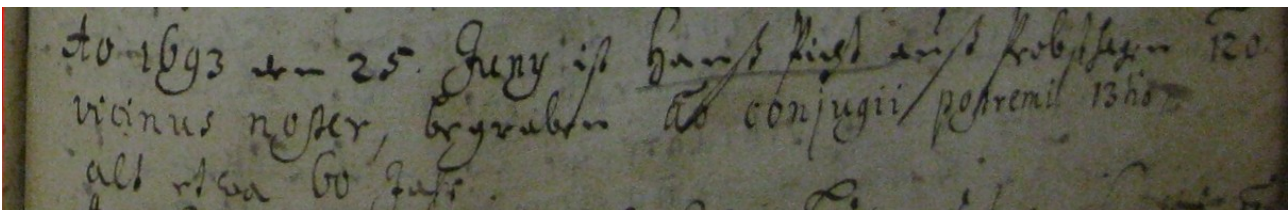 Ao 1693 den 25. Juny ist Hanß Picht auß Probsthagen 120
vicinus noster, begraben Ao conjugii postremi 13tio
alt etwa 60 Jahr.